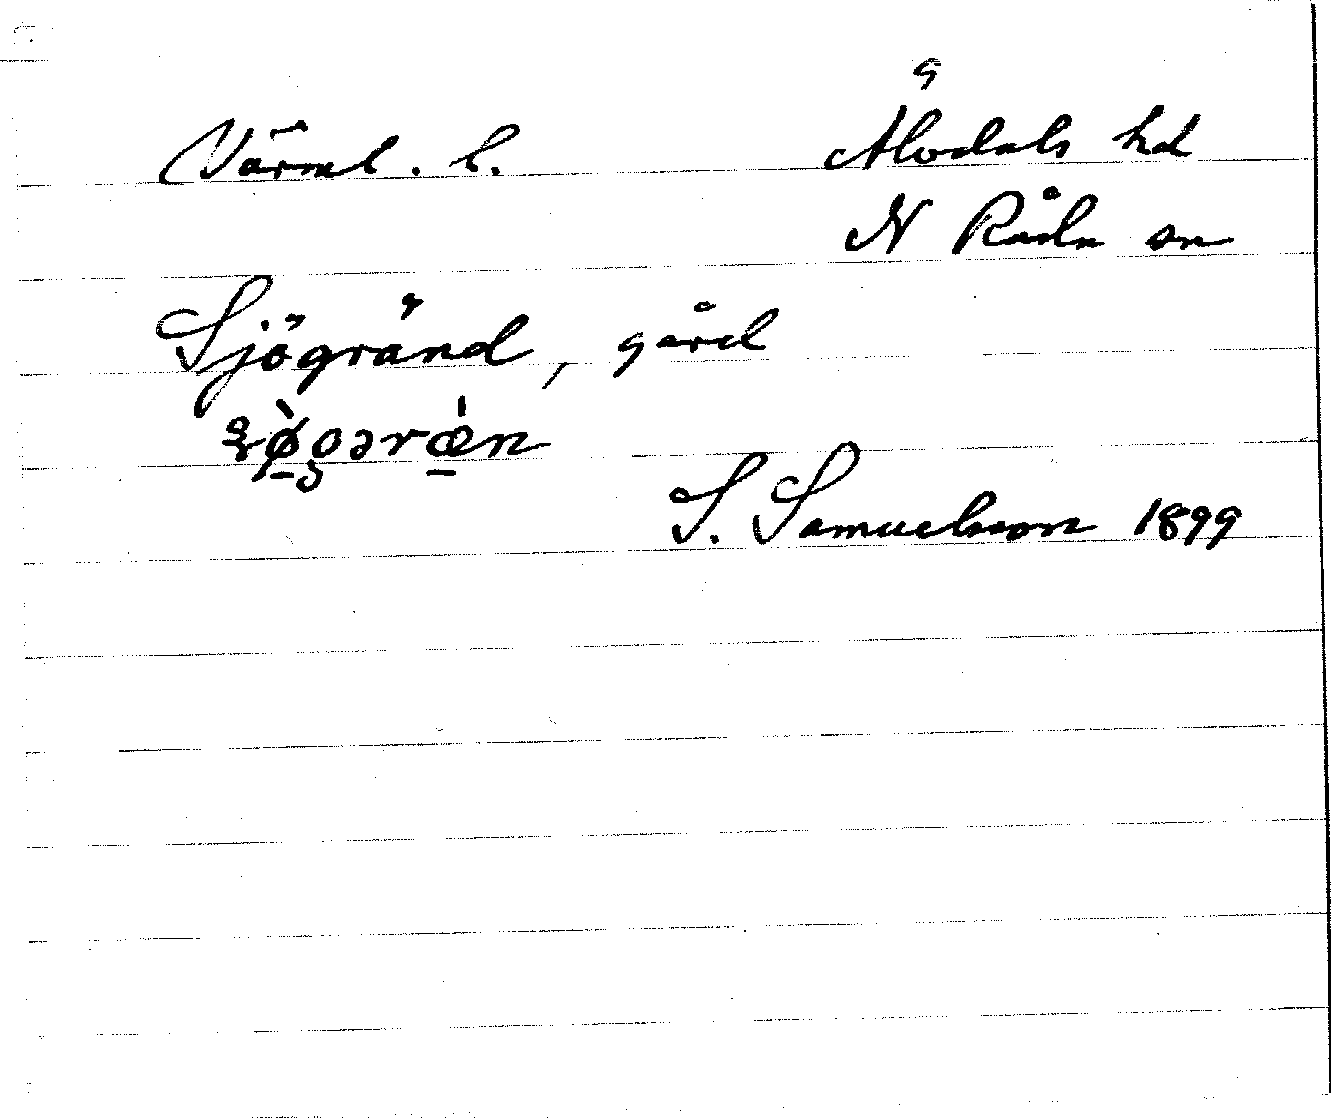 Värml. l. Älvdals hd
N Råda sn
Sjögränd, gård
S. Samuelsson 1899